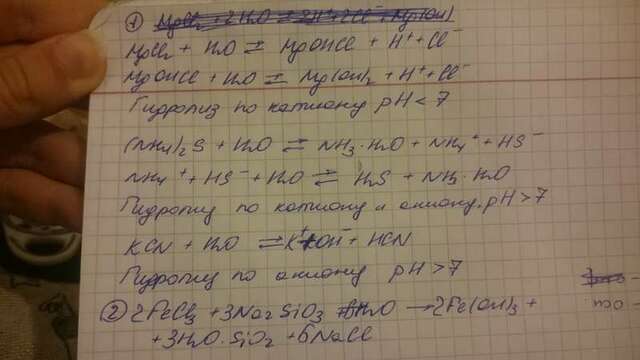 1)
MgCl₂ + H₂O ⇌ MgOHCl + H⁺ + Cl⁻
MgOHCl + H₂O ⇌ Mg(OH)₂ + H⁺ + Cl⁻
Гидролиз по катиону pH < 7
(NH₄)₂S + H₂O ⇌ NH₃·H₂O + NH₄⁺ + HS⁻
NH₄⁺ + HS⁻ + H₂O ⇌ H₂S + NH₃·H₂O
Гидролиз по катиону и аниону, pH > 7
KCN + H₂O ⇌ K⁺ + OH⁻ + HCN
Гидролиз по аниону pH > 7
2) 2FeCl₃ + 3Na₂SiO₃ + 6H₂O → 2Fe(OH)₃ +
+ 3H₂O·SiO₂ + 6NaCl